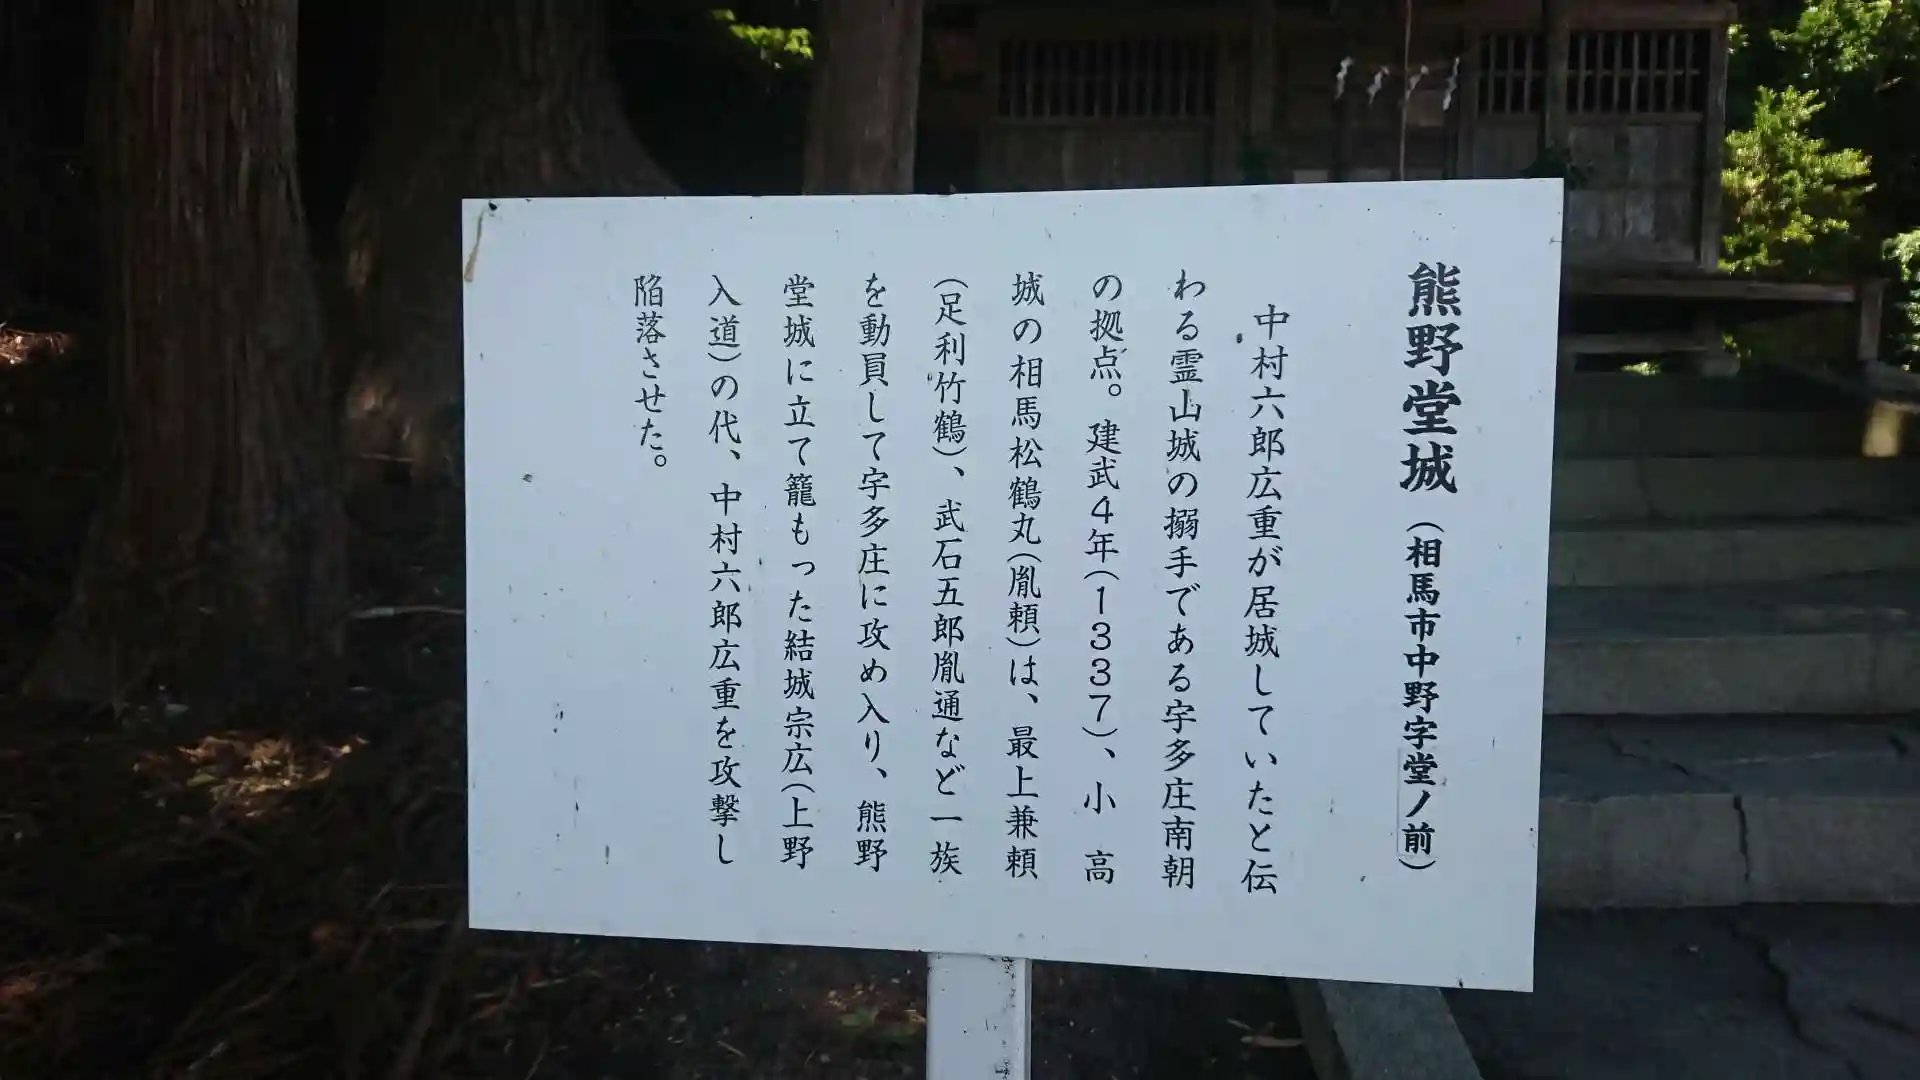 熊野堂城（相馬市中野字堂ノ前）
中村六郎広重が居城していたと伝
わる霊山城の搦手である宇多庄南朝
の拠点。建武４年（１３３７）、小　高
城の相馬松鶴丸（胤頼）は、最上兼頼
（足利竹鶴）、武石五郎胤通など一族
を動員して宇多庄に攻め入り、熊野
堂城に立て籠もった結城宗広（上野
入道）の代、中村六郎広重を攻撃し
陥落させた。